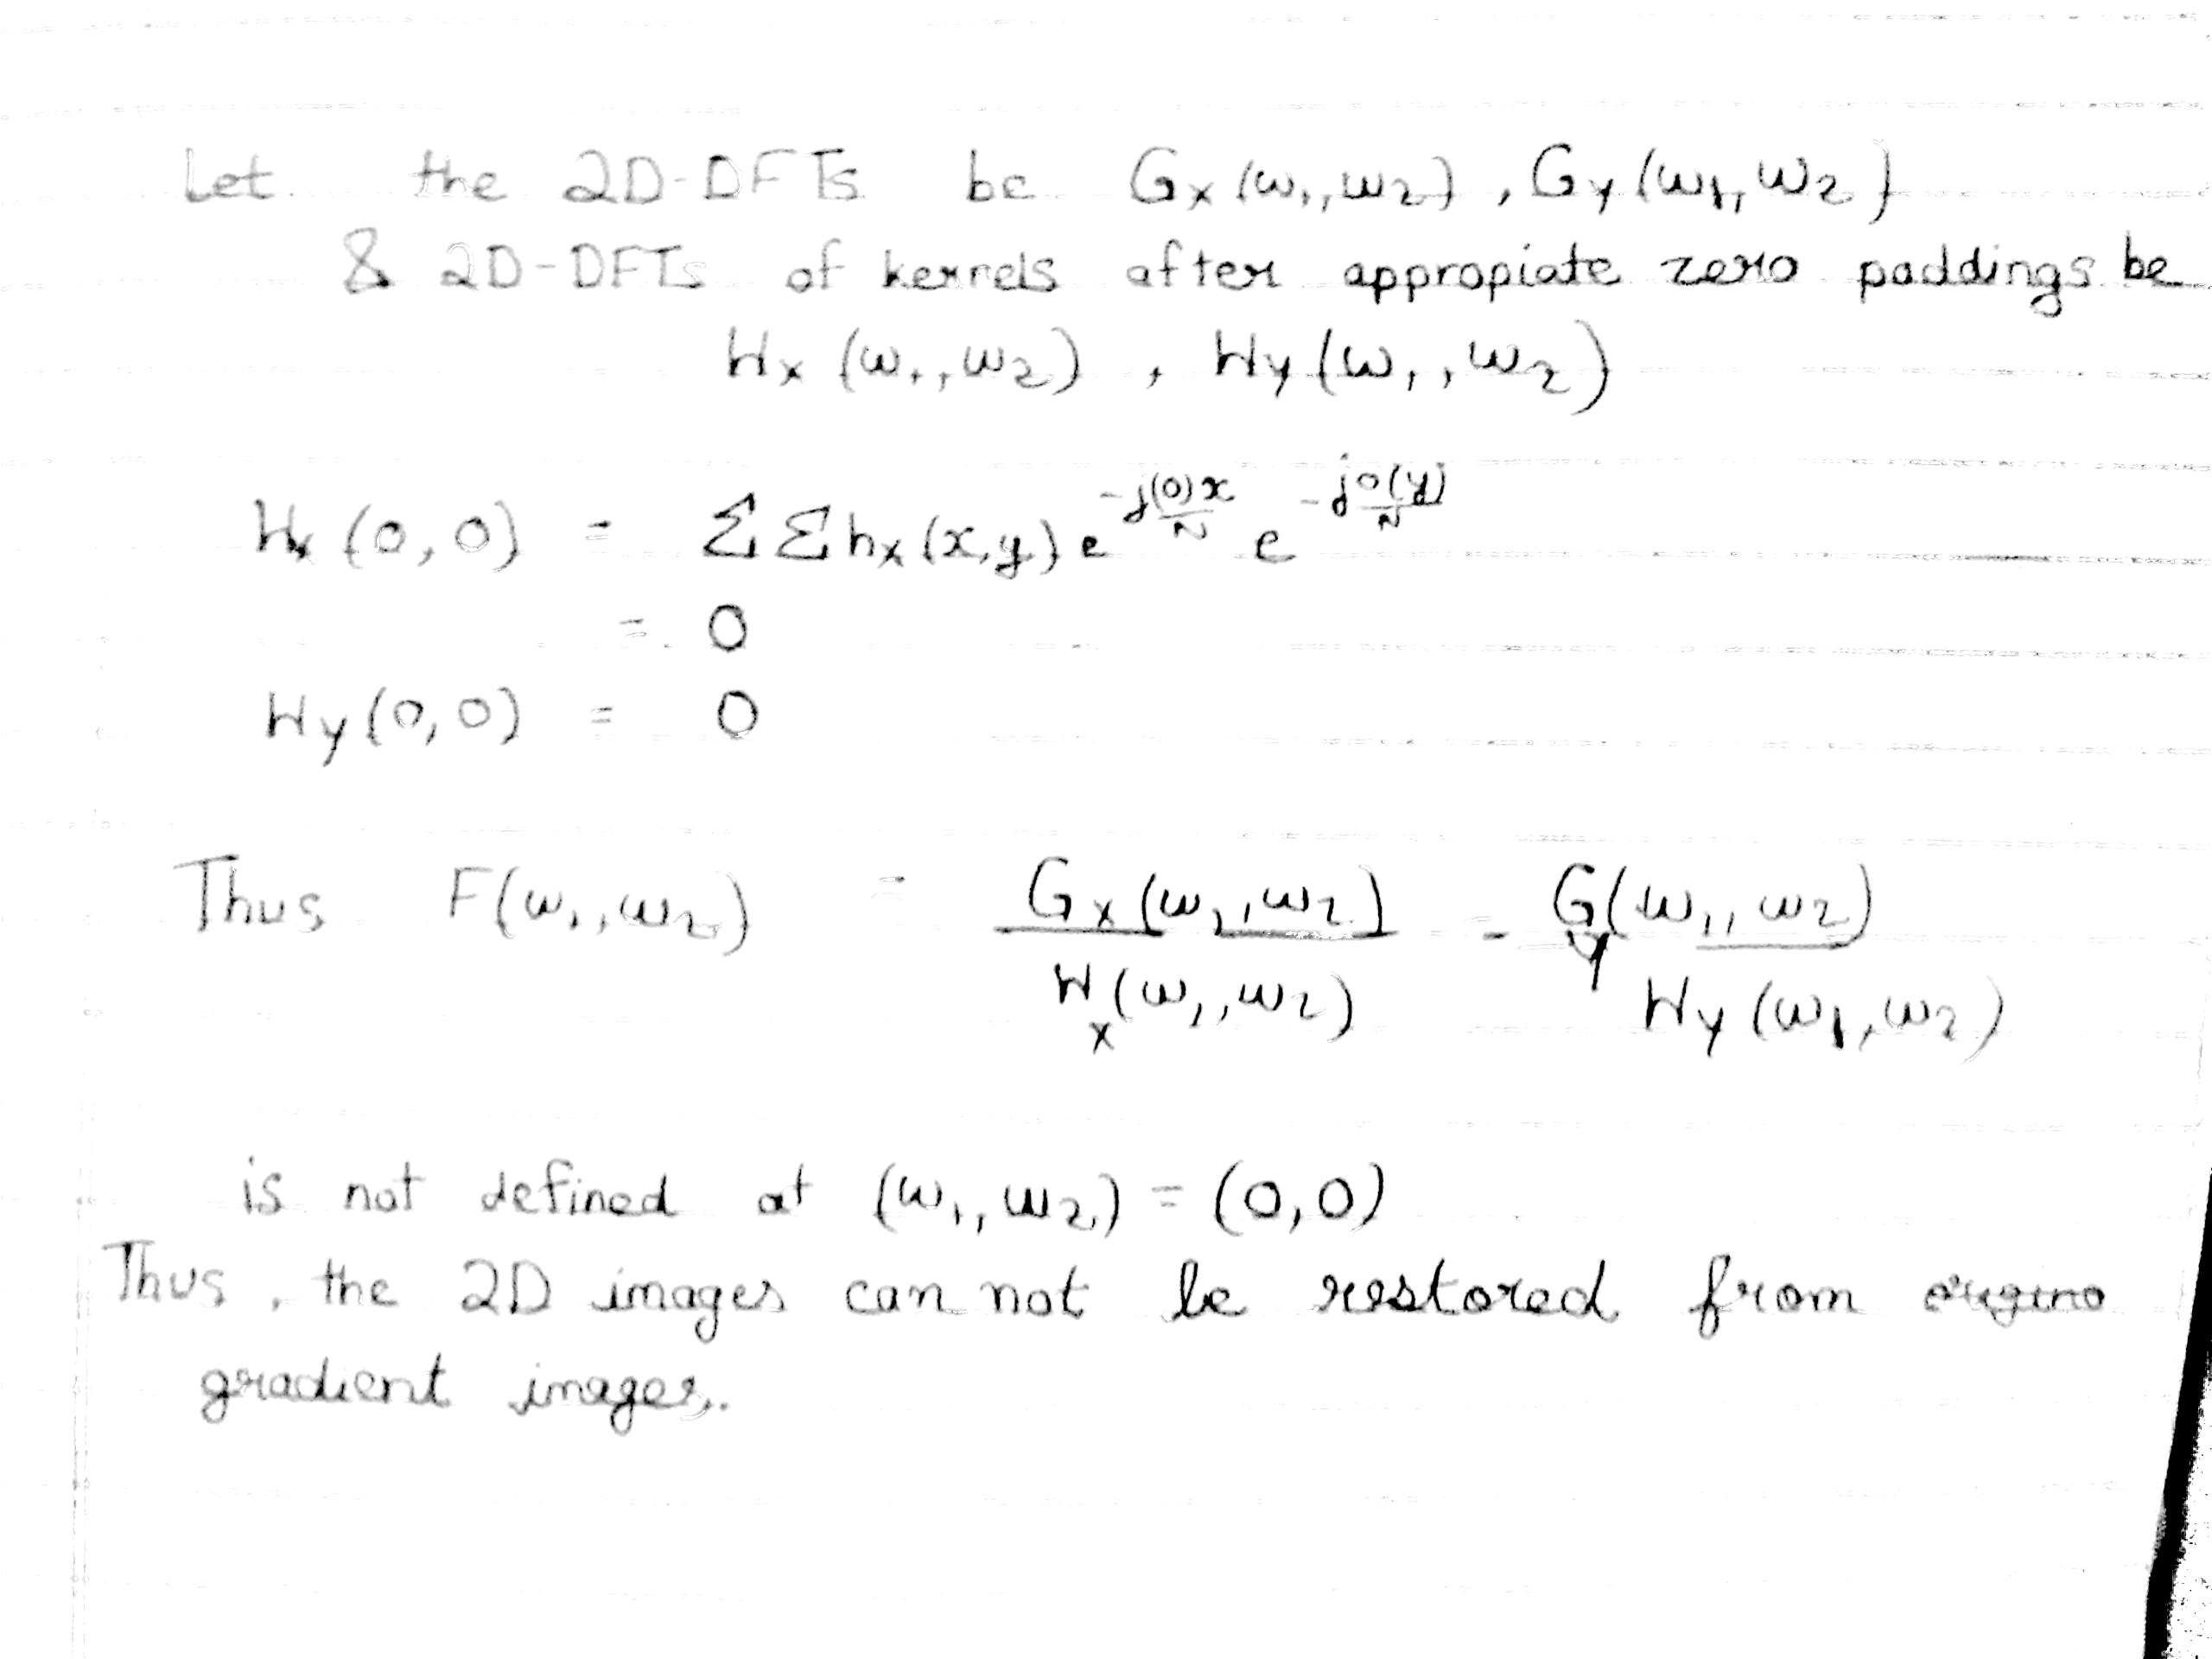 Let the 2D-DFTs be Gx (ω₁,ω₂) , Gy (ω₁,ω₂)
& 2D-DFTs of kernels after appropiate zero paddings be
Hx (ω₁,ω₂) , Hy (ω₁,ω₂)
Hx (0,0) = ΣΣ hx (x,y) e^(-j(0)x/N) e^(-j0(y)/N)
= 0
Hy (0,0) = 0
Thus F(ω₁,ω₂) = Gx (ω₁,ω₂) / Hx (ω₁,ω₂) = Gy (ω₁,ω₂) / Hy (ω₁,ω₂)
is not defined at (ω₁,ω₂) = (0,0)
Thus, the 2D images can not be restored from
gradient images.